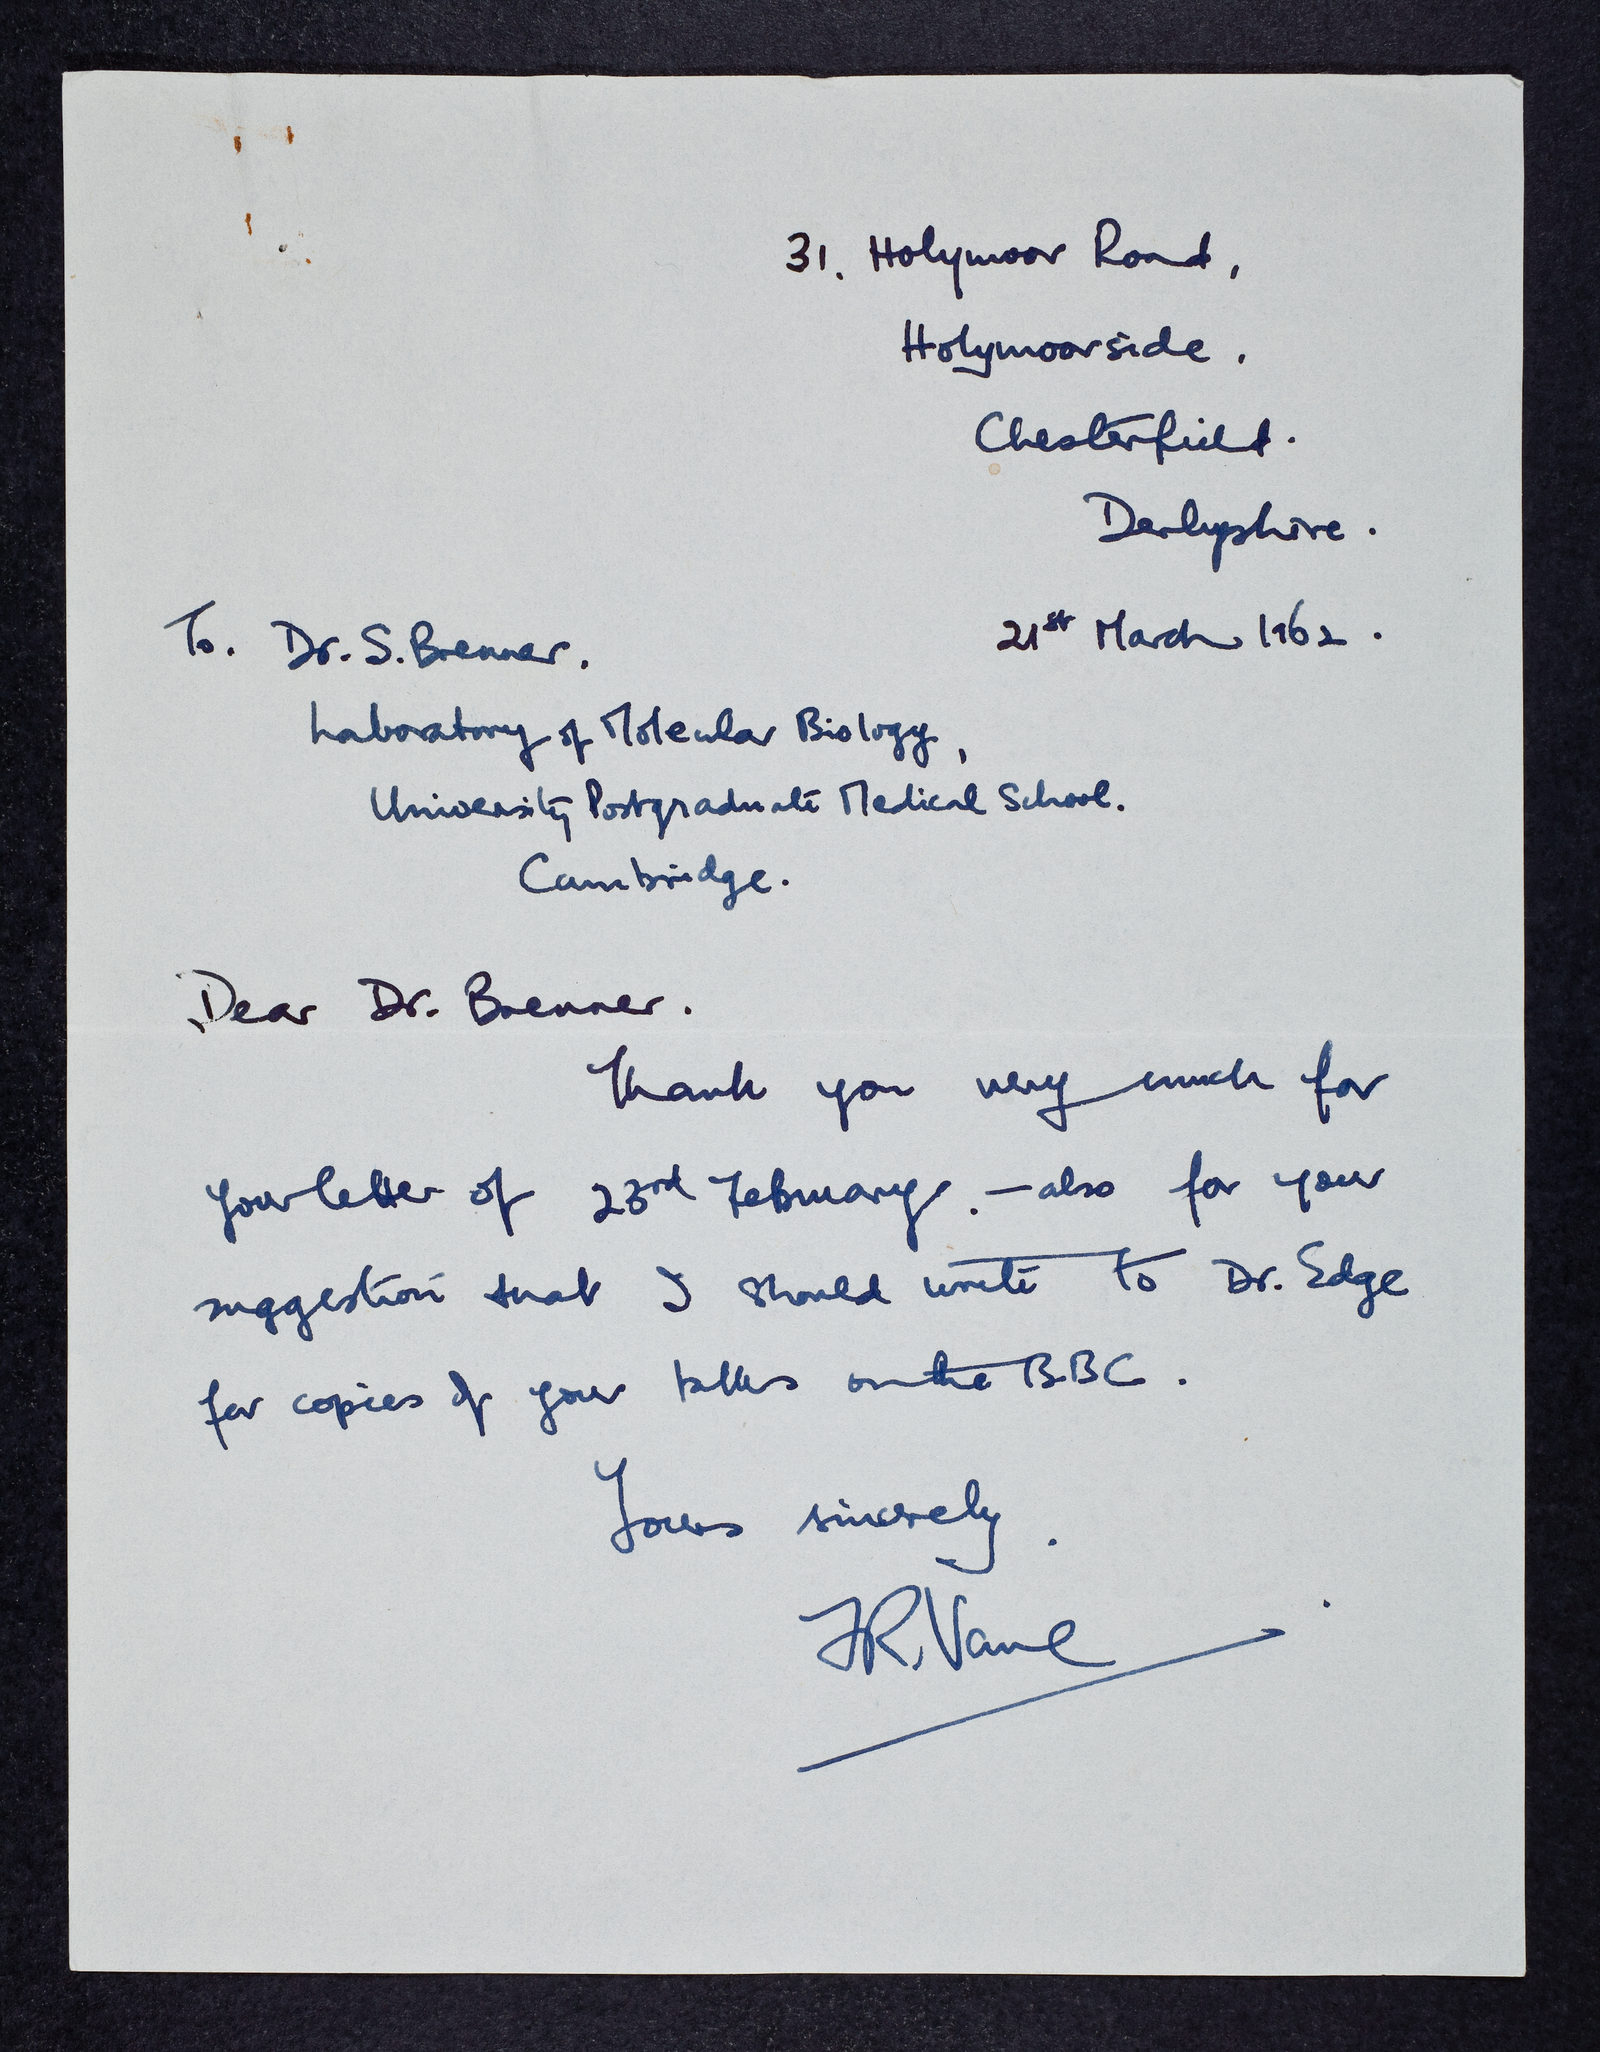 31. Holymoor Road,
Holymoorside.
Chesterfield.
Derbyshire.
21st March 1962.
To. Dr. S. Brenner.
Laboratory of Molecular Biology,
University Postgraduate Medical School.
Cambridge.
Dear Dr. Brenner.
Thank you very much for
your letter of 23rd February. - also for your
suggestion that I should write to Dr. Edge
for copies of your talks on the BBC.
Yours sincerely.
FR. Vane